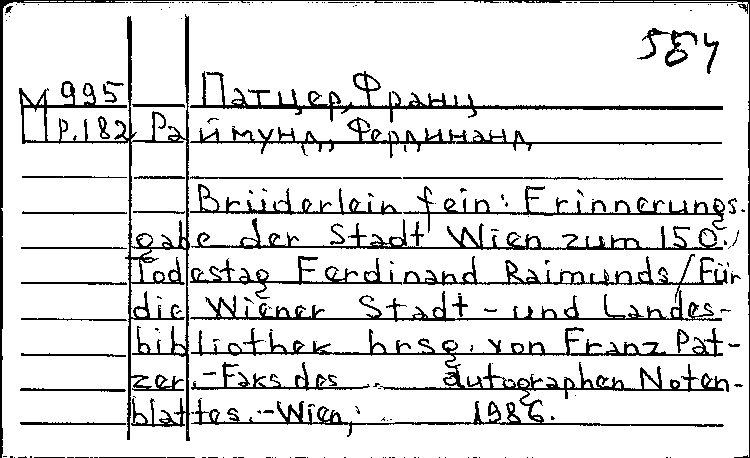 584
М 995 Патцер, Франц
Пр.182 Раймунд, Фердинанд
Brüderlein fein: Erinnerungs-
gabe der Stadt Wien zum 150.
Todestag Ferdinand Raimunds / Für
die Wiener Stadt- und Landes-
bibliothek hrsg. von Franz Pat-
zer.-Faks des autographen Noten-
blattes.-Wien, 1986.